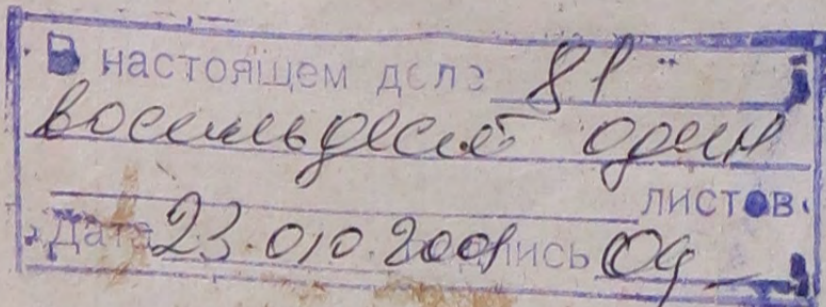 В настоящем деле 81
восемьдесят один
листов
Дата 23.010.2008 подпись